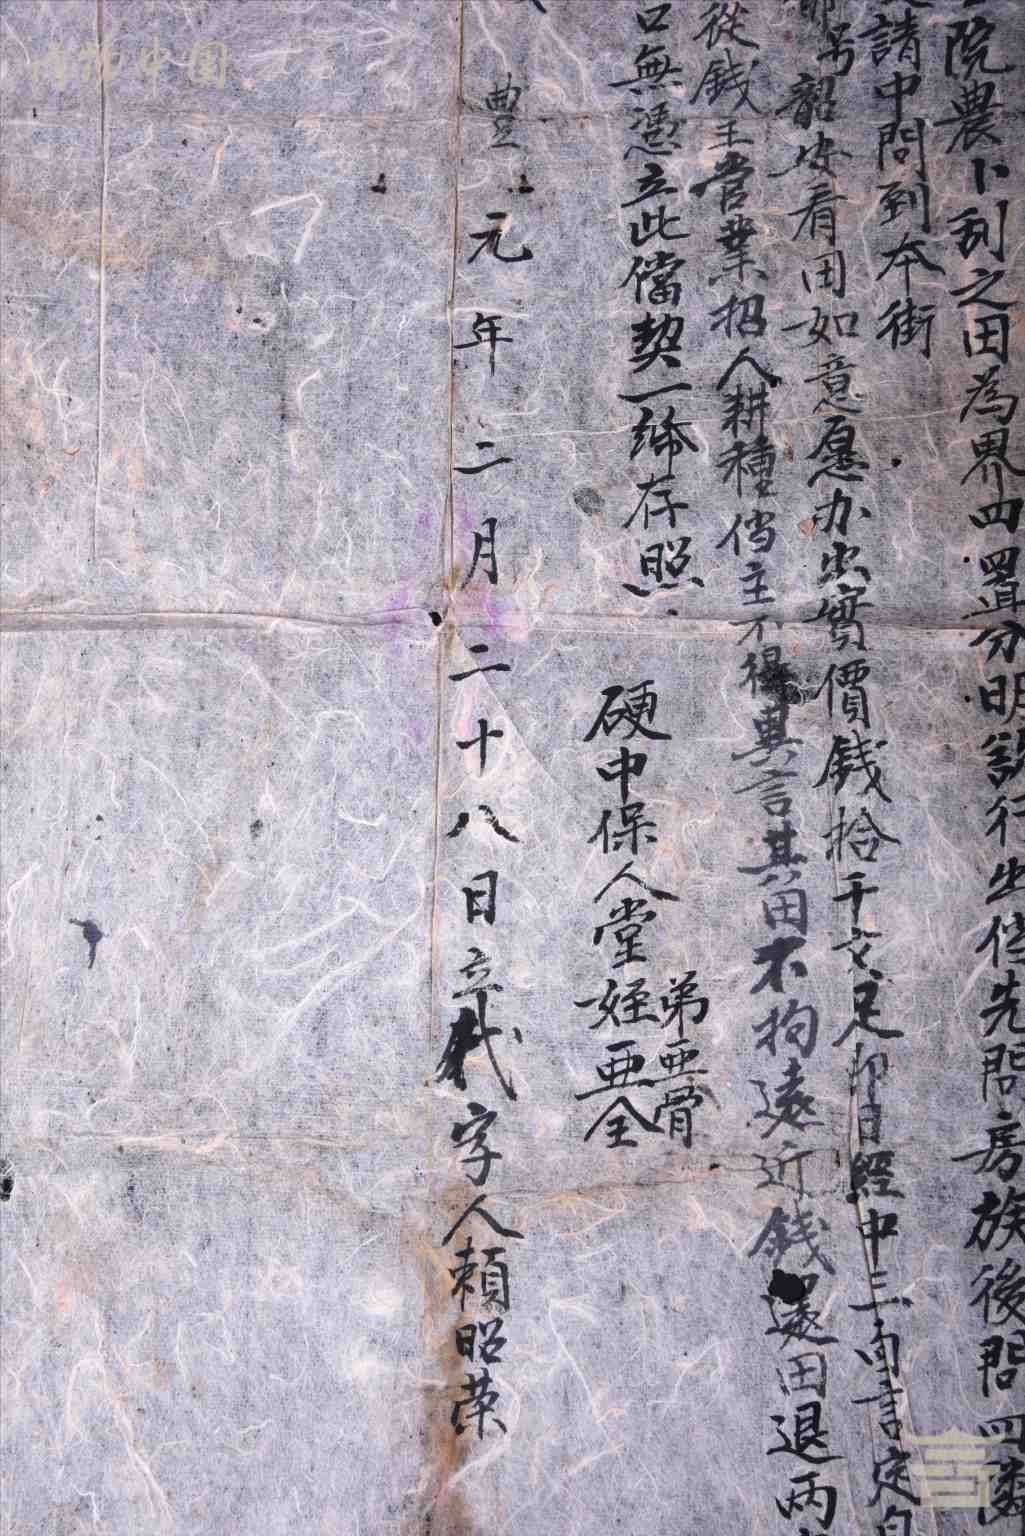 院農卜刮之田為界四置分明說行出但先問房族後問四隣
請中問到本街
号韶安看田如意愿办出實價錢拾千文足即日經中三面言定
從錢主管業招人耕種偖主不得異言其田不拘遠近錢還田退兩
口無憑立此儅契一帋存照
硬中保人堂
弟亜骨
姪亜全
豊元年二月二十八日立代字人賴昭荣
博物中国